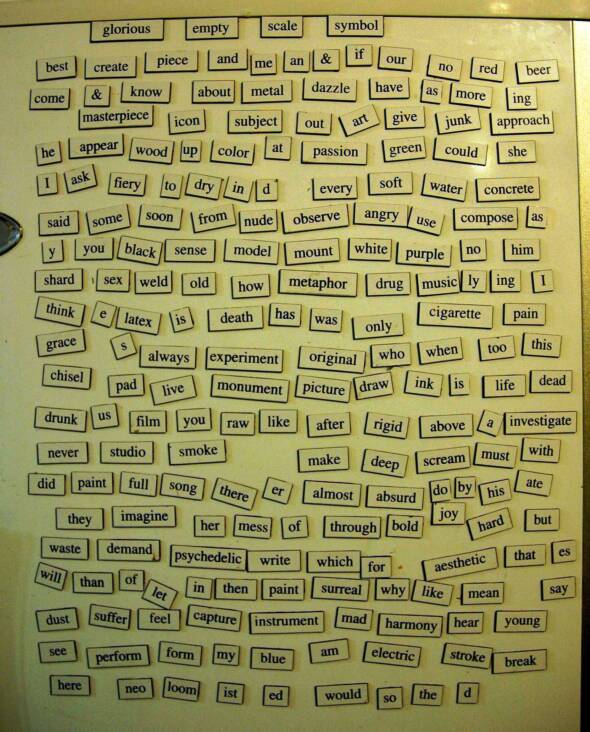 glorious empty scale symbol
best create piece and me an & if our no red beer
come & know about metal dazzle have as more ing
masterpiece icon subject out art give junk approach
he appear wood up color at passion green could she
I ask fiery to dry in d every soft water concrete
said some soon from nude observe angry use compose as
y you black sense model mount white purple no him
shard sex weld old how metaphor drug music ly ing I
think e latex is death has was only cigarette pain
grace s always experiment original who when too this
chisel pad live monument picture draw ink is life dead
drunk us film you raw like after rigid above a investigate
never studio smoke make deep scream must with
did paint full song there er almost absurd do by his ate
they imagine her mess of through bold joy hard but
waste demand psychedelic write which for aesthetic that es
will than of let in then paint surreal why like mean say
dust suffer feel capture instrument mad harmony hear young
see perform form my blue am electric stroke break
here neo loom ist ed would so the d